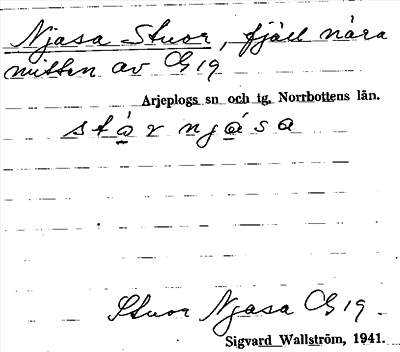 Njasa Stuor, fjäll nära
mitten av G 19
Arjeplogs sn och tg, Norrbottens län.
stå̱r njá̱sa
Stuor Njasa G 19.
Sigvard Wallström, 1941.